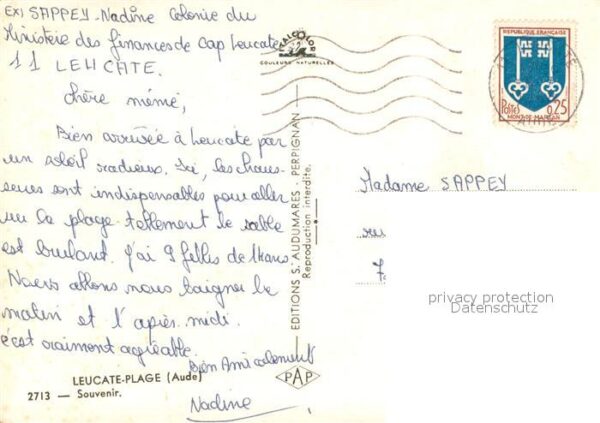 EX) SAPPEY Nadine Colonie du
Ministère des finances de Cap Leucate
11 LEUCATE.
Chère mémé,
Bien arrivée à Leucate par
un soleil radieux. Ici, les chaus-
sures sont indispensables pour aller
sur la plage tellement le sable
est brulant. J'ai 9 filles de 11 ans.
Nous allons nous baigner le
matin et l'après midi.
c'est vraiment agréable.
Bien Amicalement
Nadine
LEUCATE-PLAGE (Aude)
2713 — Souvenir.
COULEURS NATURELLES
EDITIONS S. AUDUMARES - PERPIGNAN
Reproduction interdite.
PAP
REPUBLIQUE FRANÇAISE
Postes
0,25
MONT-DE-MARSAN
Madame SAPPEY
rue
7
privacy protection
Datenschutz